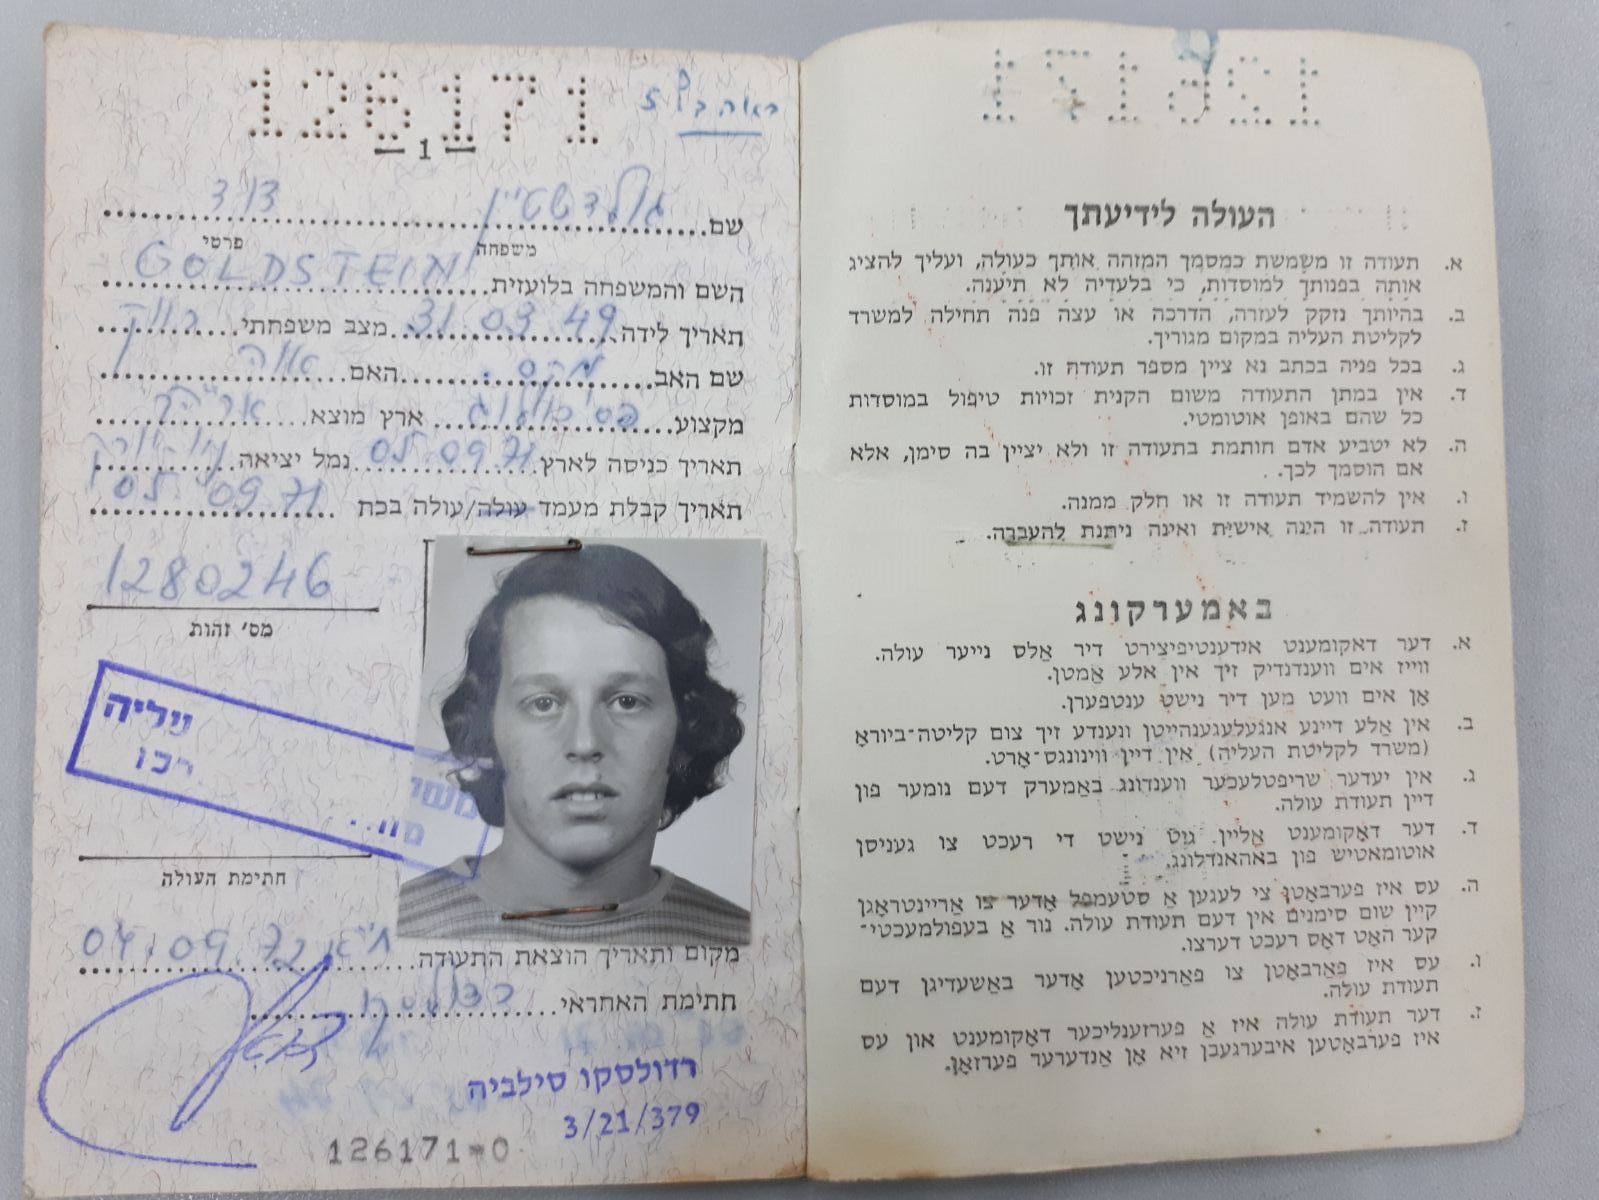 126171
ראה דף 5
1
שם גולדשטיין דוד
משפחה פרטי
השם והמשפחה בלועזית GOLDSTEIN
תאריך לידה 31.03.49 מצב משפחתי רווק
שם האב מקס האם
מקצוע פסיכולוג ארץ מוצא ארה"ב
תאריך כניסה לארץ 05.09.71 נמל יציאה ניו-יורק
תאריך קבלת מעמד עולה/עולה בכח 05.09.71
1280246
מס' זהות
חתימת העולה
מקום ותאריך הוצאת התעודה ת"א 04.09.72
חתימת האחראי רדולסקו
רדולסקו סילביה
3/21/379
126171-0
העולה לידיעתך
א. תעודה זו משמשת כמסמך המזהה אותך כעולה, ועליך להציג
אותה בפנותך למוסדות, כי בלעדיה לא תיענה.
ב. בהיותך נזקק לעזרה, הדרכה או עצה פנה תחילה למשרד
לקליטת העליה במקום מגוריך.
ג. בכל פניה בכתב נא ציין מספר תעודה זו.
ד. אין במתן התעודה משום הקנית זכויות טיפול במוסדות
כל שהם באופן אוטומטי.
ה. לא יטביע אדם חותמת בתעודה זו ולא יציין בה סימן, אלא
אם הוסמך לכך.
ו. אין להשמיד תעודה זו או חלק ממנה.
ז. תעודה זו הינה אישית ואינה ניתנת להעברה.
באמערקונג
א. דער דאקומענט אידענטיפיצירט דיר אַלס נייער עולה.
ווייז אים ווענדנדיק זיך אין אלע אַמטן.
אָן אים וועט מען דיר נישט ענטפערן.
ב. אין אַלע דיינע אנגעלעגענהייטן ווענדע זיך צום קליטה-ביוראָ
(משרד לקליטת העליה) אין דיין ווינונגס-אָרט.
ג. אין יעדער שריפטלעכער ווענדונג באַמערק דעם נומער פון
דיין תעודת עולה.
ד. דער דאָקומענט אַליין גיט נישט די רעכט צו געניסן
אוטומאטיש פון באהאנדלונג.
ה. עס איז פערבאָטן צי לעגען אַ סטעמפל אָדער צו אריינטראָגן
קיין שום סימנים אין דעם תעודת עולה. נור אַ בעפולמעכטי-
קער האָט דאָס רעכט דערצו.
ו. עס איז פאַרבאָטן צו פאַרניכטען אָדער באַשעדיגן דעם
תעודת עולה.
ז. דער תעודת עולה איז אַ פערזענליכער דאָקומענט און עס
איז פערבאָטען איבערגעבן זיא אָן אַנדערער פערזאָן.